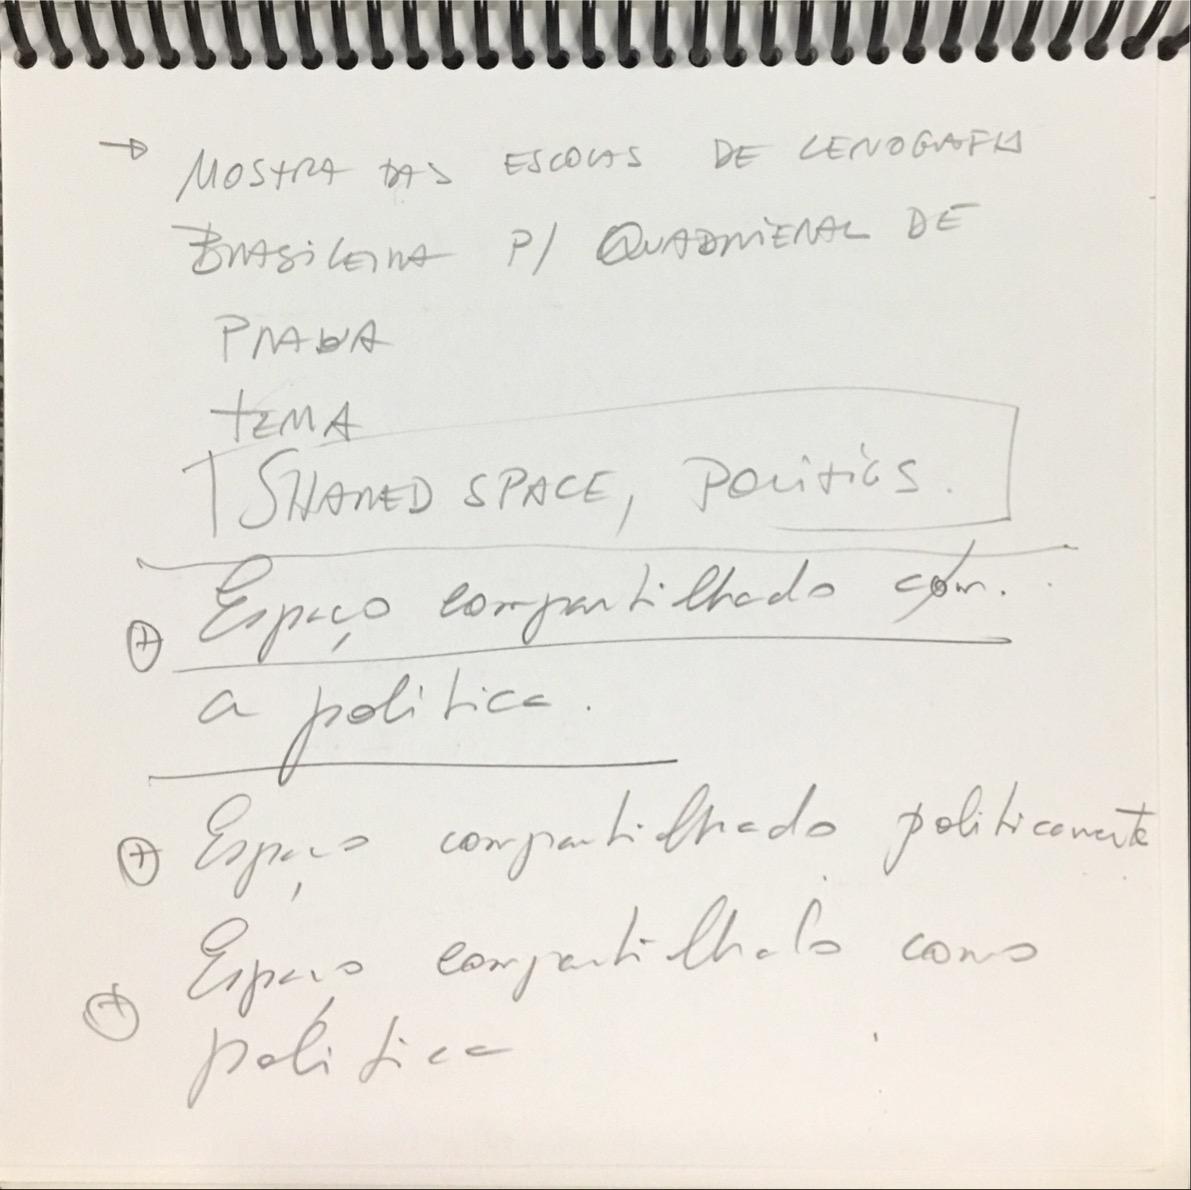 → MOSTRA DAS ESCOLAS DE CENOGRAFIA
BRASILEIRA P/ QUADRIENAL DE
PRAGA
TEMA
SHARED SPACE, POLITICS.
⊕ Espaço compartilhado com.
a politica.
⊕ Espaço compartilhado politicamente
Espaço compartilhado como
⊕ politica